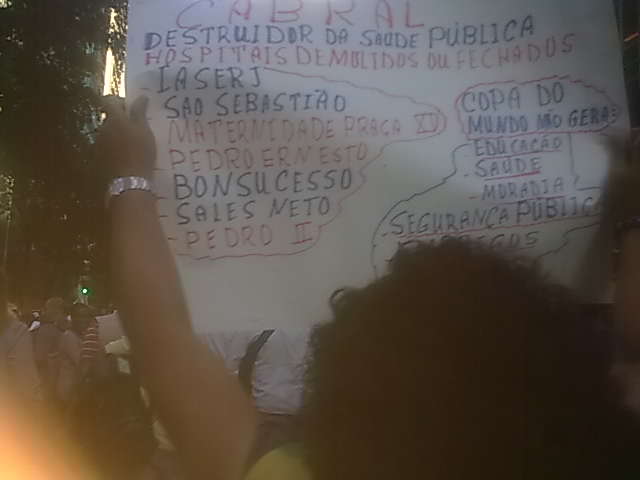 CABRAL
DESTRUIDOR DA SAUDE PÚBLICA
HOSPITAIS DEMOLIDOS OU FECHADOS
- IASERJ
- SAO SEBASTIÃO
- MATERNIDADE PRAÇA XV
- PEDRO ERNESTO
- BONSUCESSO
- SALES NETO
- PEDRO II
COPA DO
MUNDO NÃO GERA:
- EDUCAÇÃO
- SAÚDE
- MORADIA
- SEGURANÇA PÚBLICA